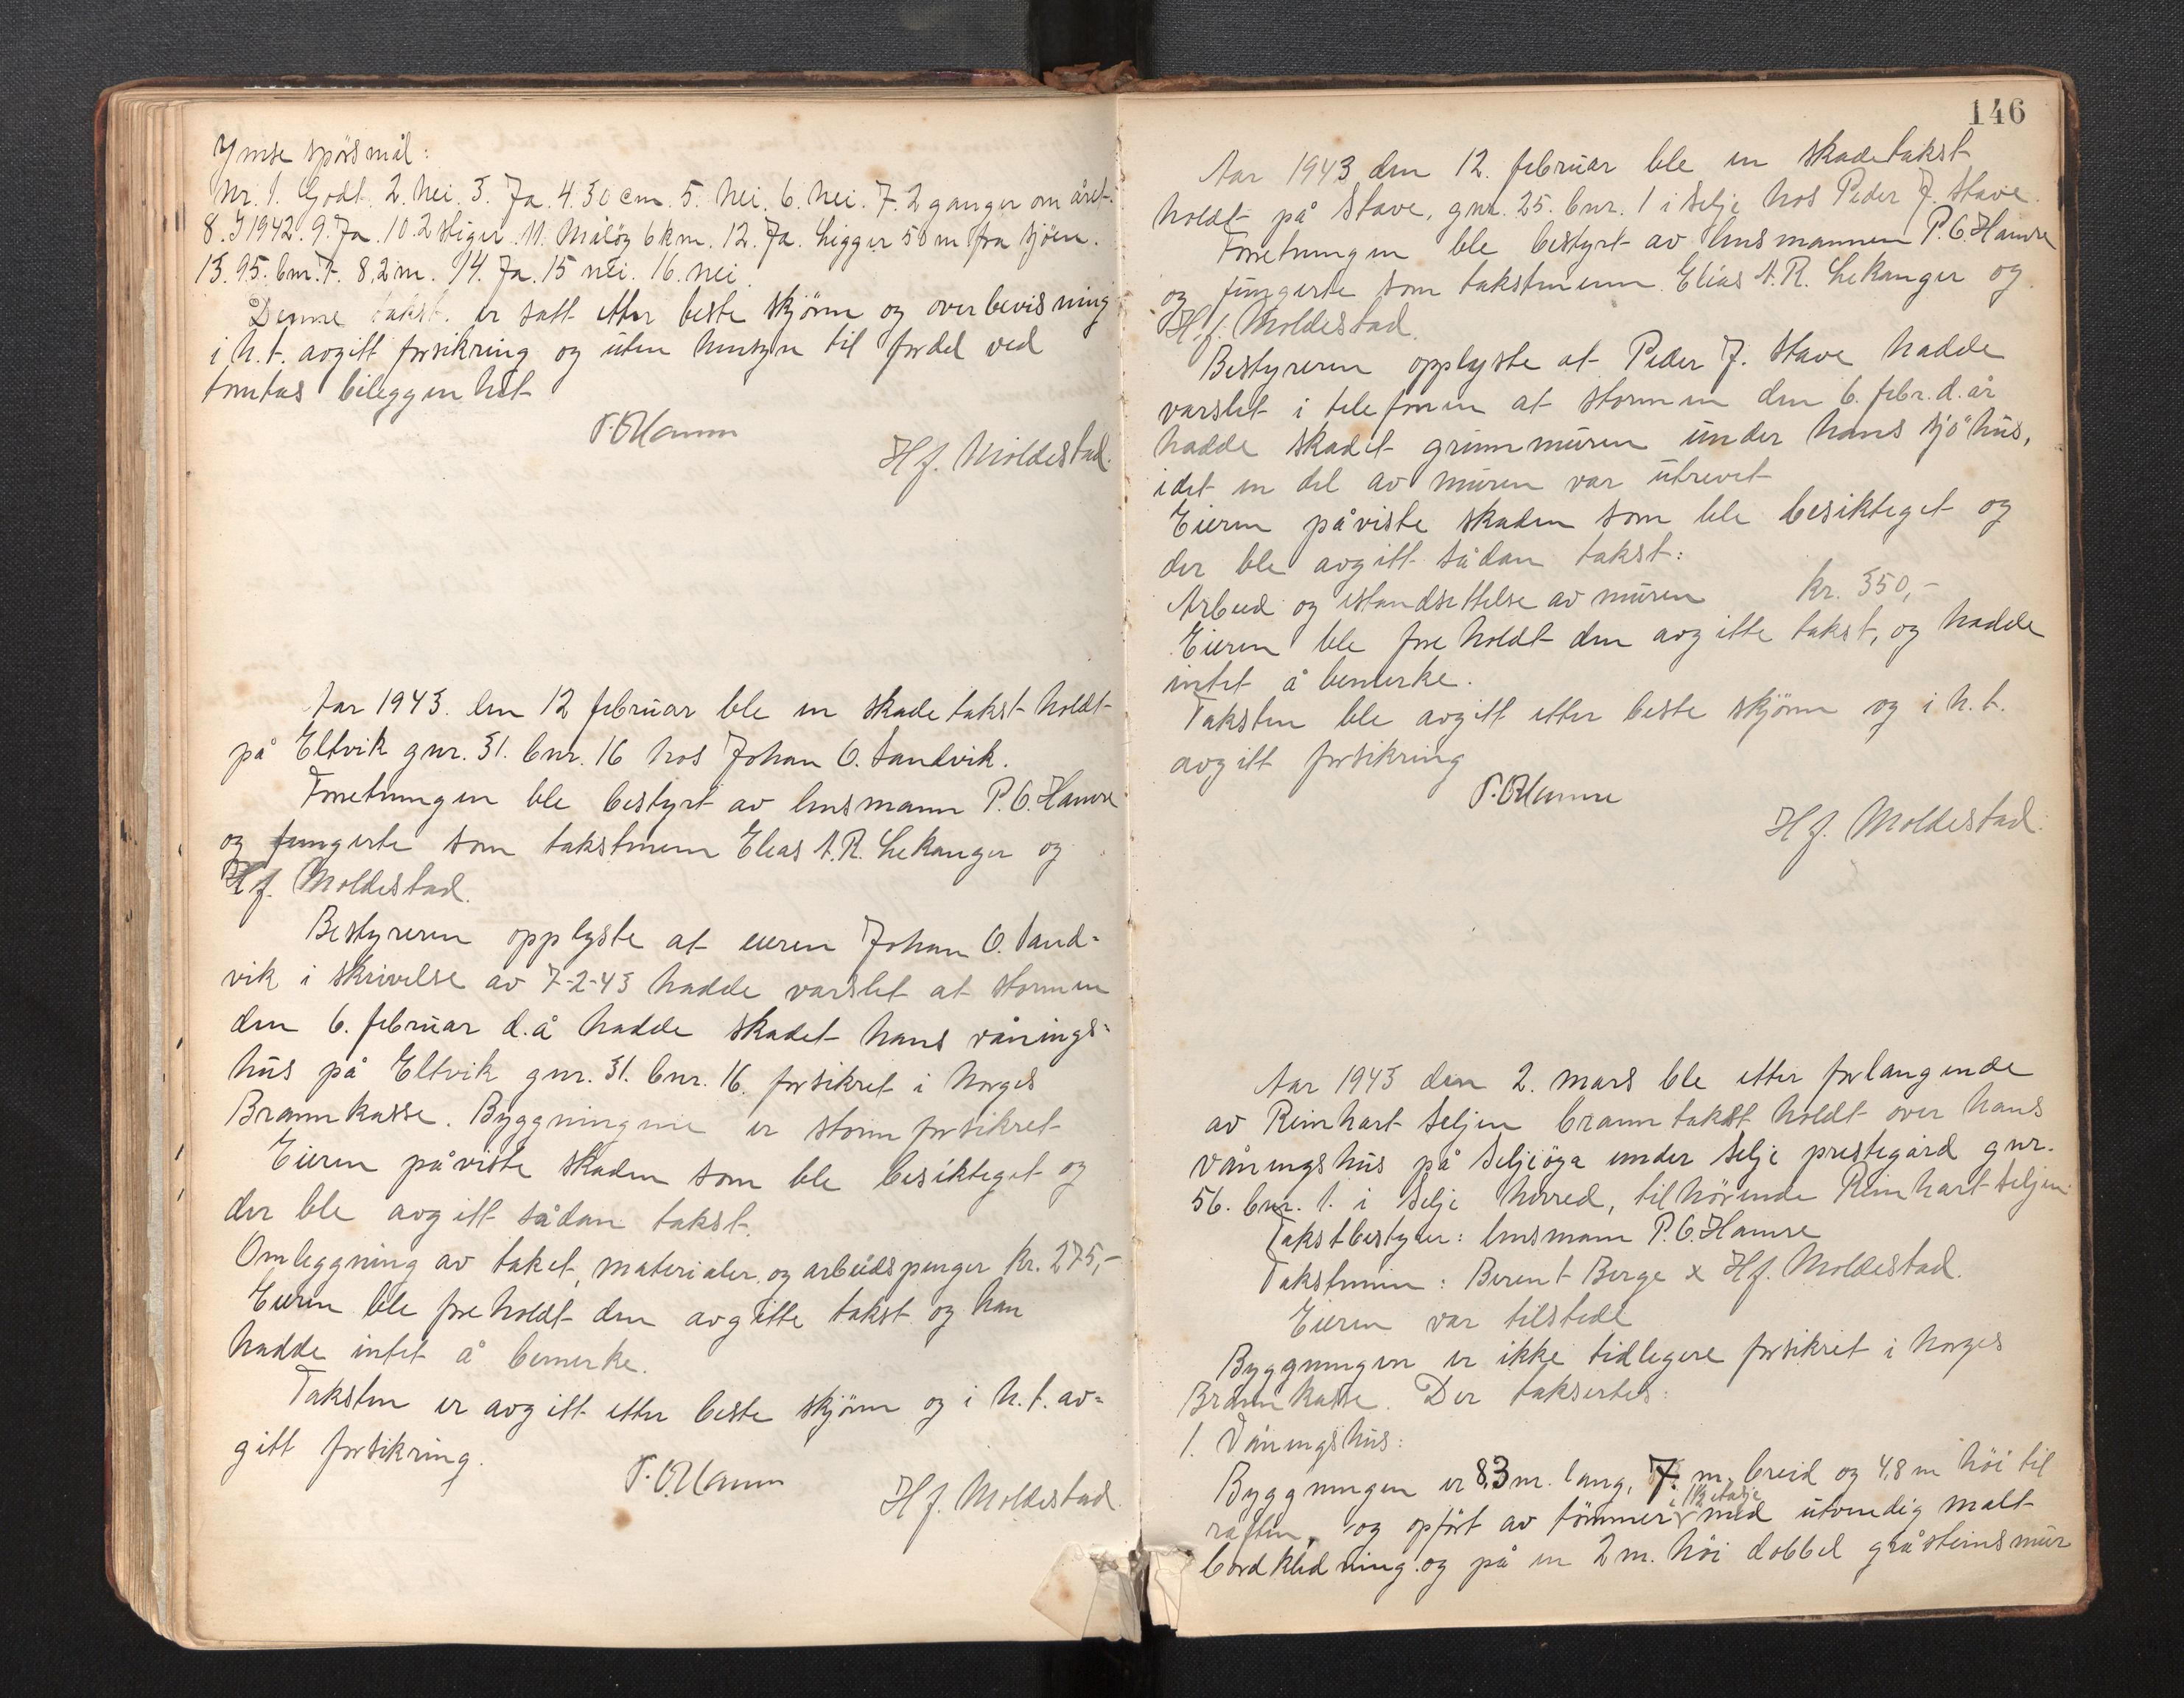 Ymse spörsmål:
Nr. 1. Godt. 2. Nei. 3. Ja. 4. 30 cm. 5. Nei. 6. Nei. 7. 2 ganger om året.
8. I 1942. 9. Ja. 10. 2 stiger. 11. Målöy 6 km. 12. Ja. Ligger 50 m fra sjöen.
13. 95. bnr. 8,2 m. 14. Ja. 15 nei. 16. nei.
Denne takst. er satt etter beste skjönn og overbevisning
i h.t. avgitt forsikring og uten hensyn til fordel ved
tomtas beleggenhet
P.O. Hamre
H.J. Moldestad.
Aar 1943. den 12 februar ble en skadetakst holdt
på Eltvik gnr. 31. bnr. 16 hos Johan O. Sandvik.
Forretningen ble bestyrt av lensmann P.O. Hamre
og fungerte som takstmenn Elias A.R. Lekanger og
H.J. Moldestad.
Bestyreren opplyste at eieren Johan O. Sand=
vik i skrivelse av 7-2-43 hadde varslet at stormen
den 6. februar d.å hadde skadet hans vånings=
hus på Eltvik gnr. 31. bnr. 16. forsikret i Norges
Brannkasse. Byggningene er stormforsikret
Eieren påviste skaden som ble besikteget og
der ble avgitt sådan takst.
Omleggning av taket, materialer og arbeidspenger kr. 275,-
Eieren ble foreholdt den avgitte takst og han
hadde intet å bemerke.
Taksten er avgitt etter beste skjönn og i h.t. av=
gitt forsikring.
P.O. Hamre
H.J. Moldestad.
146
Aar 1943 den 12. februar ble en skadetakst
holdt på Stave, gnr. 25. bnr. 1 i Selje hos Peder J. Stave.
Forretningen ble bestyrt av lensmannen P.O. Hamre
og fungerte som takstmenn Elias A.R. Lekanger og
H.J. Moldestad.
Bestyreren opplyste at Peder J. Stave hadde
varslet i telefonen at stormen den 6. febr. d. år
hadde skadet grunnmuren under hans sjöhus,
idet en del av muren var utrevet
Eieren påviste skaden som ble besikteget og
der ble avgitt sådan takst:
Arbeid og istandsettelse av muren kr. 350,-
Eieren ble foreholdt den avgitte takst, og hadde
intet å bemerke.
Taksten ble avgitt etter beste skjönn og i h.t.
avgitt forsikring
P.O. Hamre
H.J. Moldestad.
Aar 1943 den 2. mars ble etter forlangende
av Reinhart Seljen branntakst holdt over hans
våningshus på Seljeöya under Selje prestegård gnr.
56. bnr. 1. i Selje herred, tilhörende Reinhart Seljen.
Takstbestyrer: lensmann P.O. Hamre
Takstmenn: Berent Berge x H.J. Moldestad.
Eieren var tilstede
Byggningen er ikke tidligere forsikret i Norges
Brannkasse. Der taksertes:
1. Våningshus:
Byggningen er 8,3 m. lang, 7. m. breid og 4,8 m höi til
i 1½ etasje
raften, og opfört av tömmer med utvendig malt
bordkledning og på en 2 m. höi dobbel gråsteinsmur